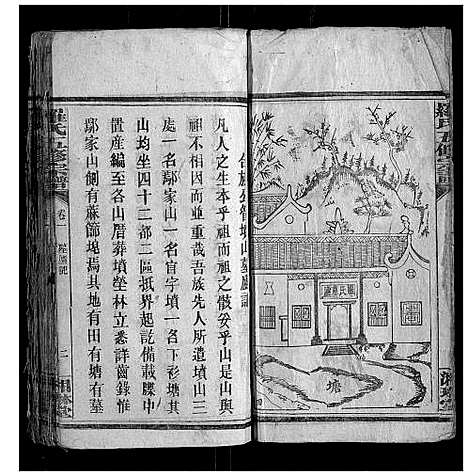 羅氏五修宗譜
羅氏宗祠
塘
合族公管墳山墓廬記
凡人之生本乎祖而祖之骸妥乎山是山與
祖不相因而並重哉吾族先人所遺墳山三
處一名鄢家山一名官字墳一名下彩塘其
山均坐四十二都二區抵界起訖備載牒中
置產編至各山厝葬墳塋林立悉詳齒錄惟
鄢家山側有蔴篩塅焉其地有田有塘有墓
羅氏五修宗譜
卷一
二